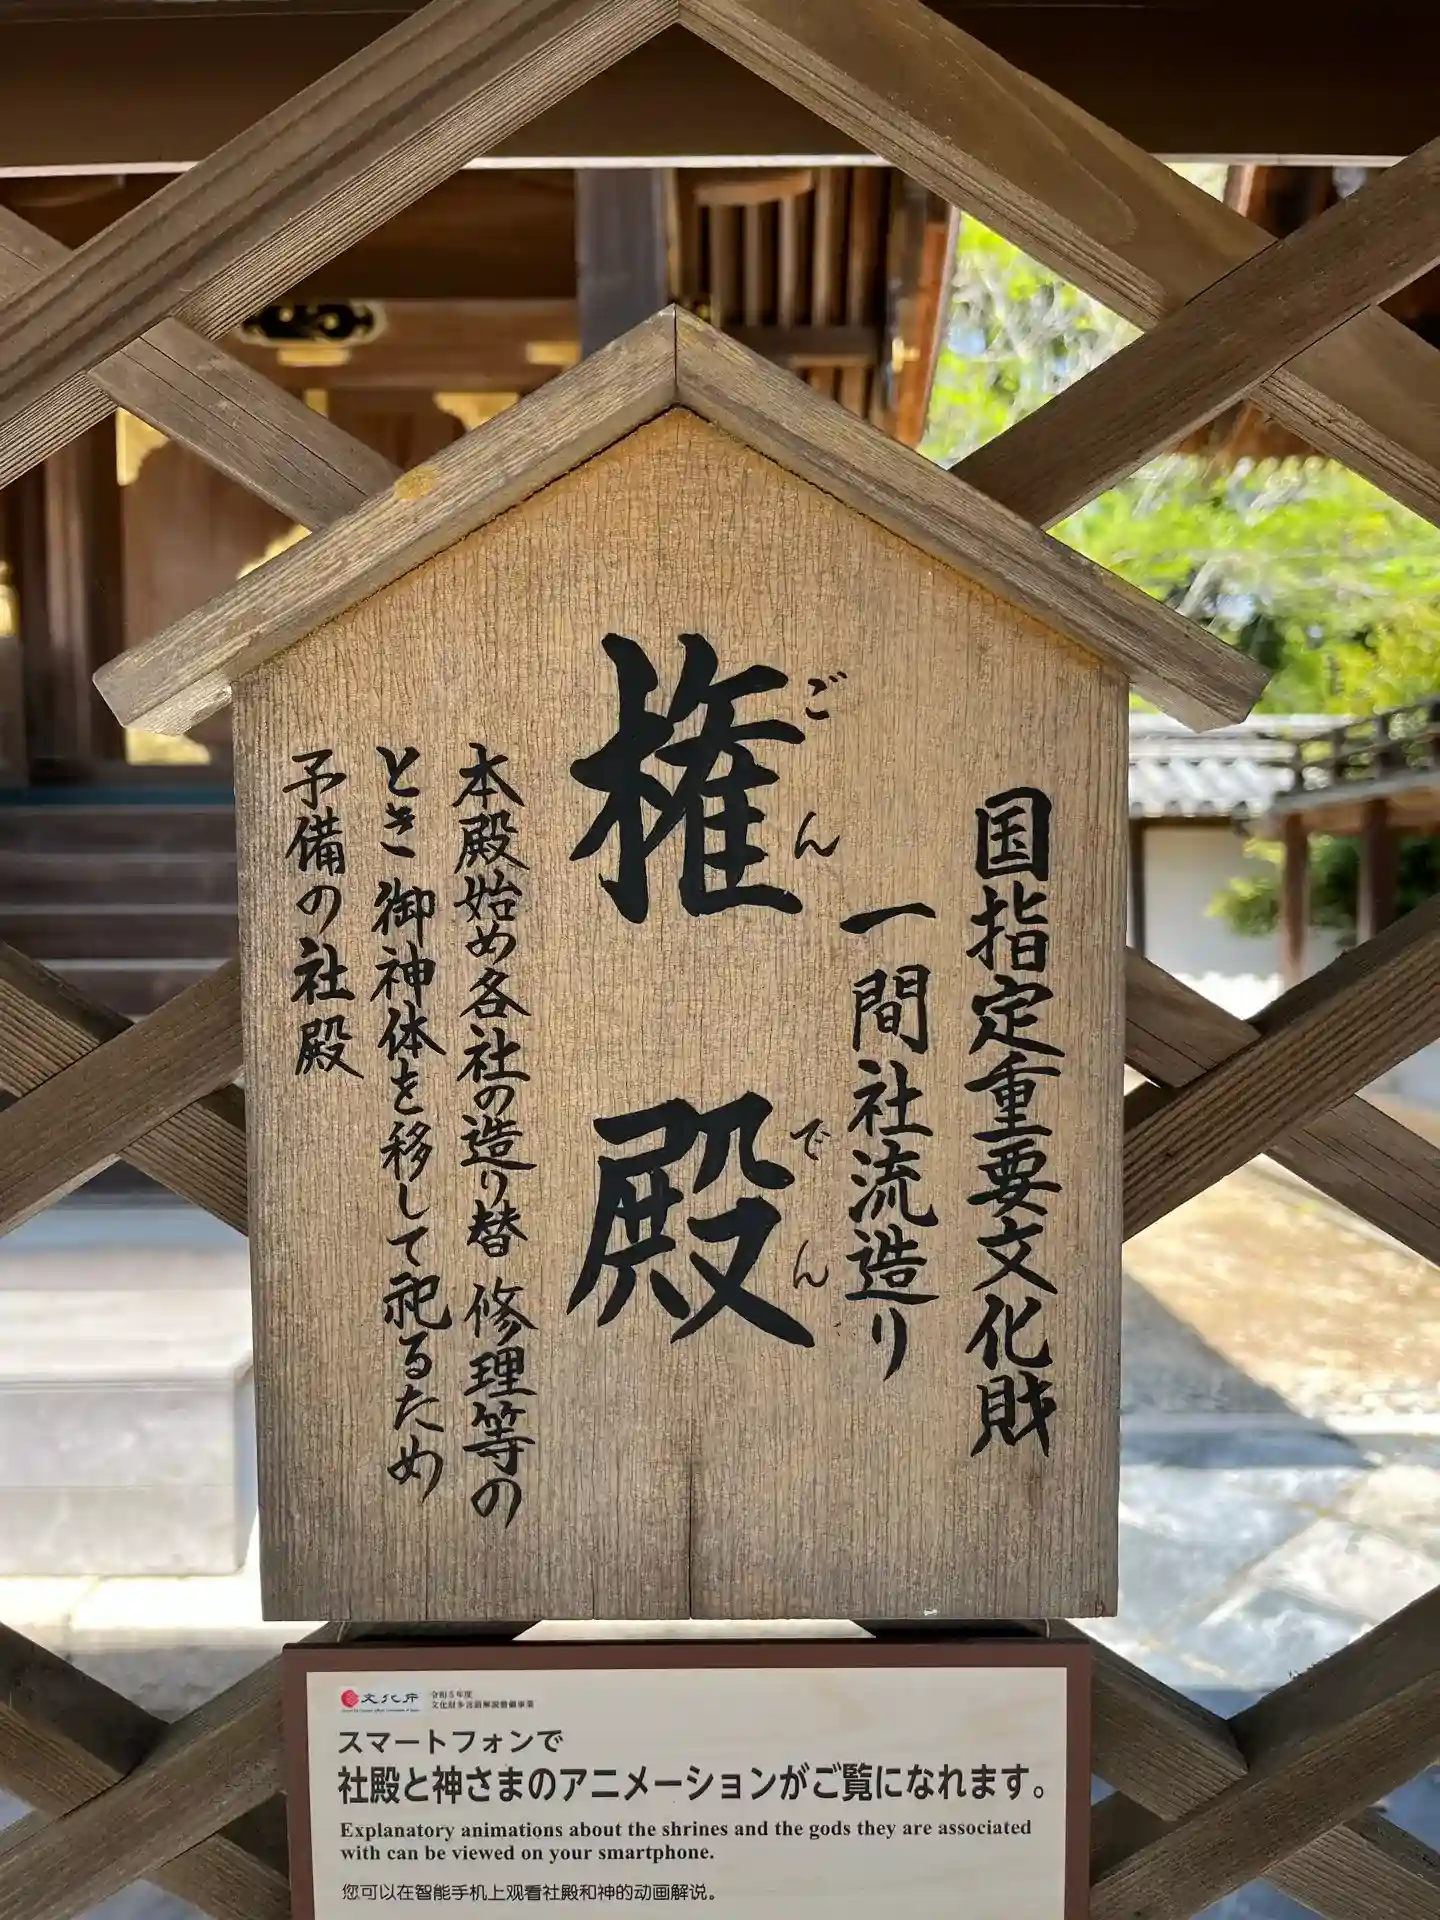 国指定重要文化財
一間社流造り
ごんでん
権殿
本殿始め各社の造り替 修理等の
とき 御神体を移して祀るため
予備の社殿
文化庁
令和5年度
文化財多言語解説整備事業
スマートフォンで
社殿と神さまのアニメーションがご覧になれます。
Explanatory animations about the shrines and the gods they are associated
with can be viewed on your smartphone.
您可以在智能手机上观看社殿和神的动画解说。